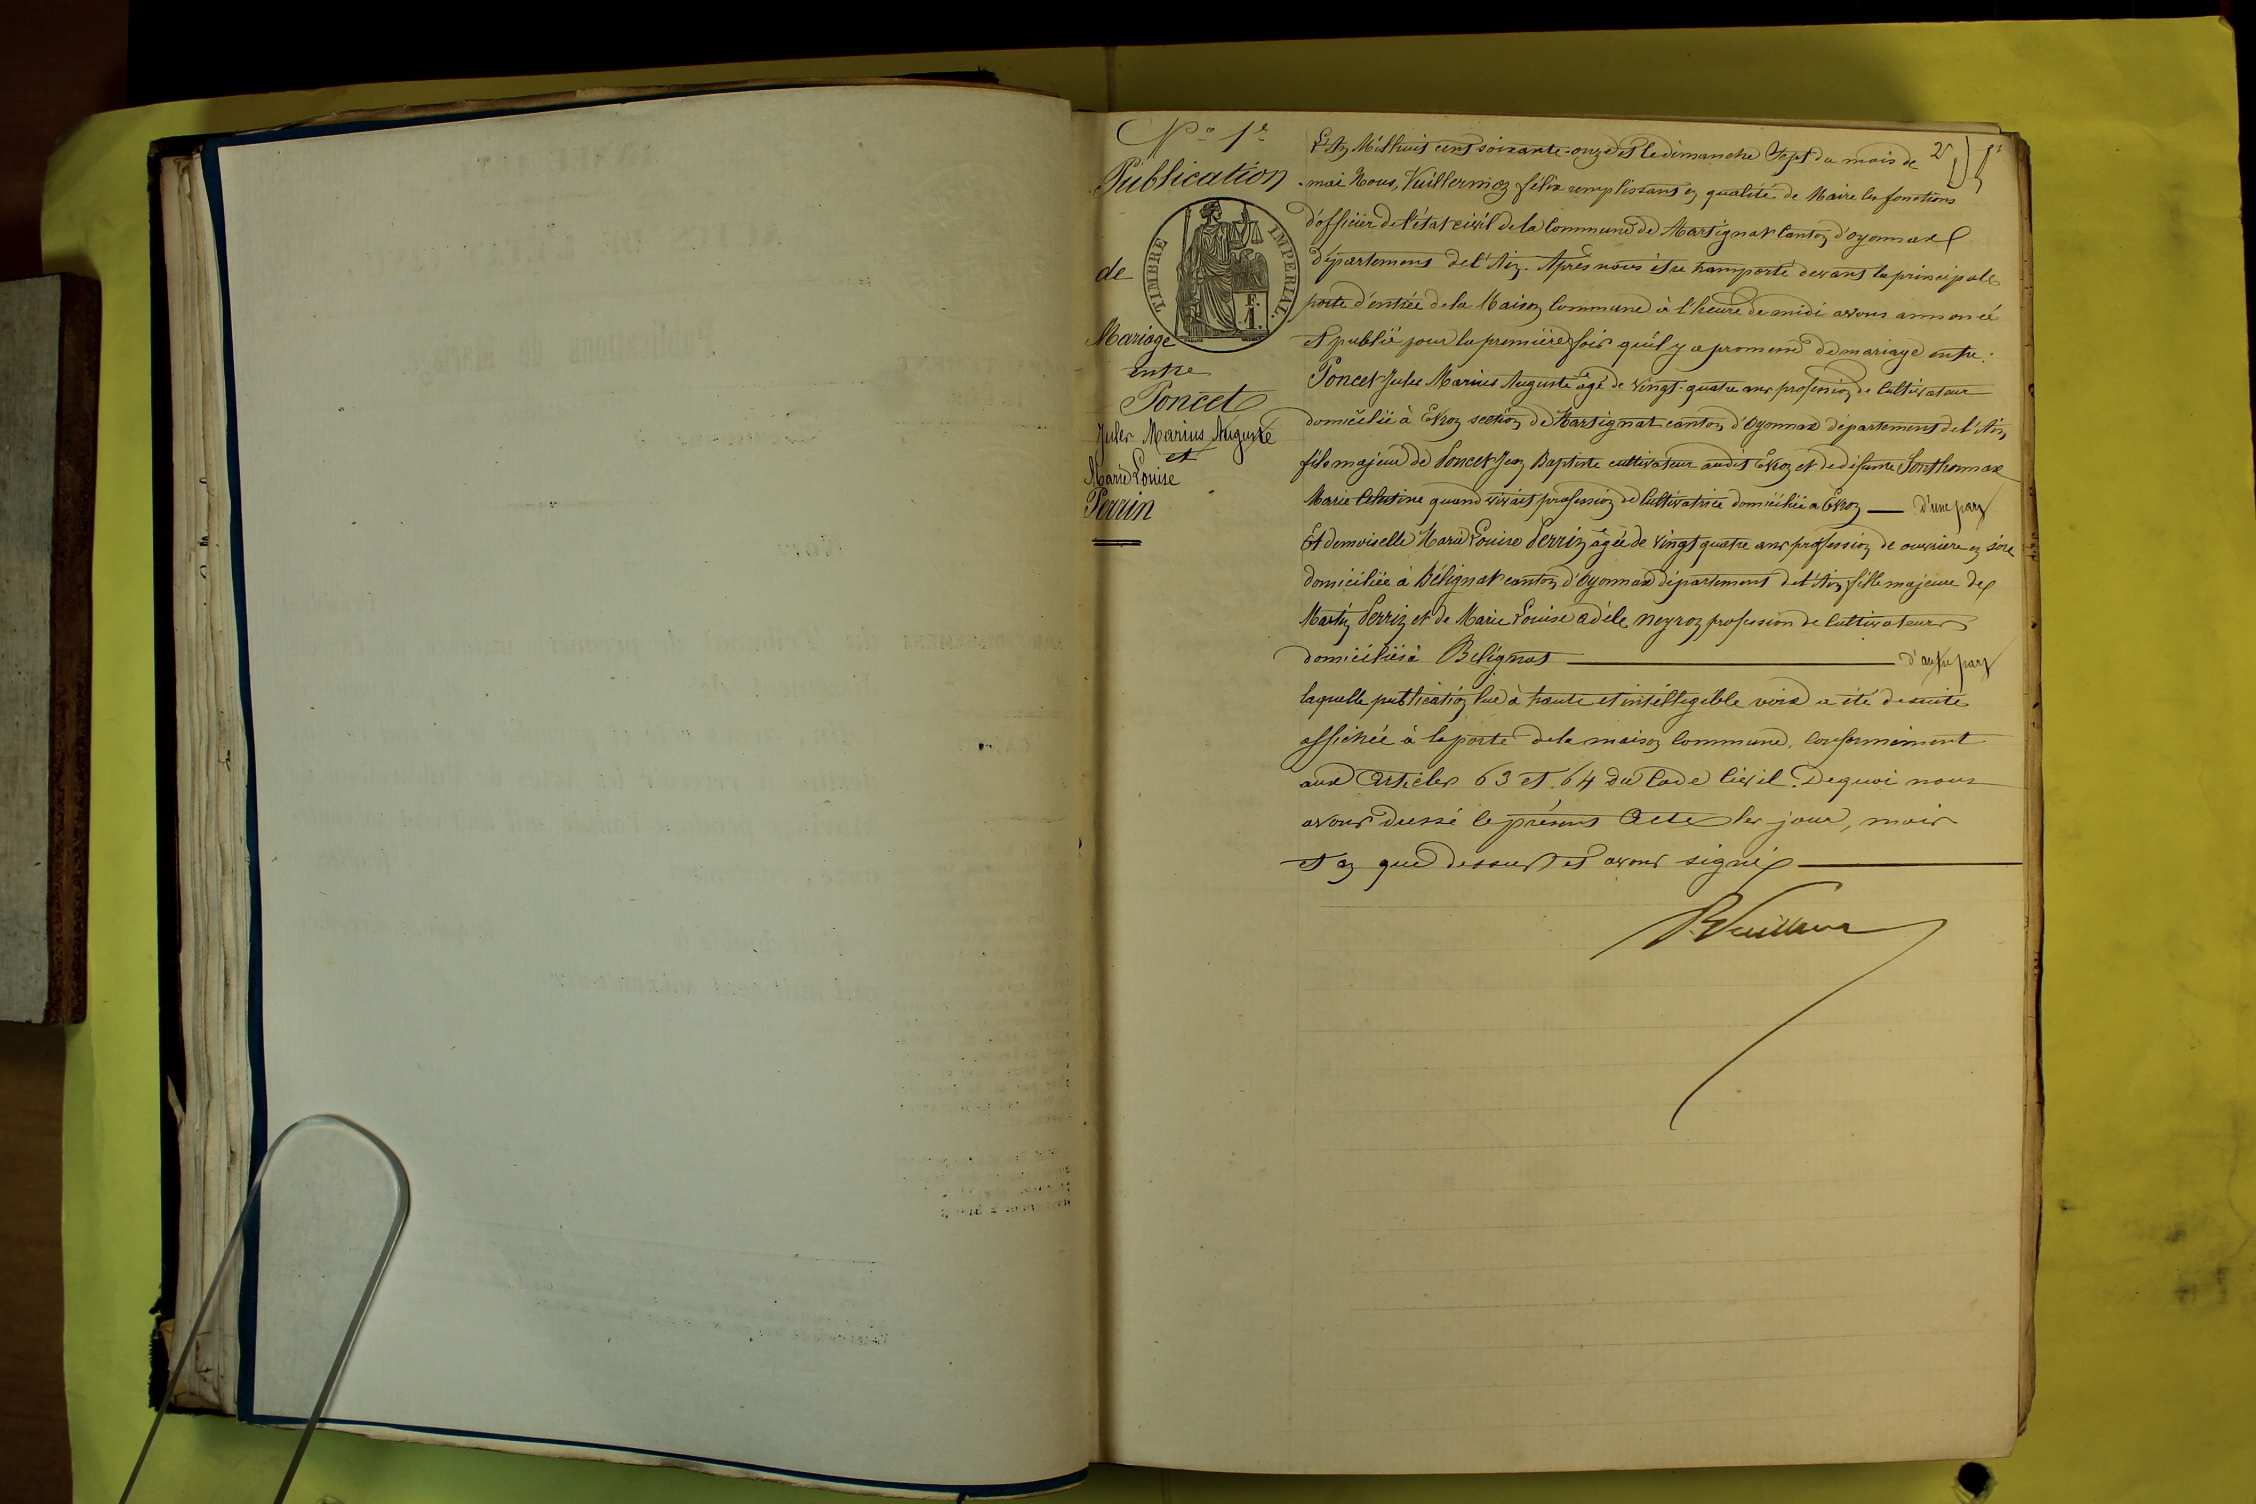 No 1er
Publication
de
TIMBRE IMPERIAL.
F.
1.
Mariage
entre
Poncet
Jules Marius Auguste
et
Marie Louise
Perrin
2
L'An Mil huit cent soixante-onze et le dimanche Sept du mois de
mai Nous, Vuillermoz félix remplissant en qualité de Maire les fonctions
d'officier de l'état civil de la Commune de Martignat Canton d'oyonnax
département de l'Ain. Après nous être transporté devant la principale
porte d'entrée de la Maison Commune à l'heure de midi avons annoncé
et publié pour la première fois qu'il y a promesse de mariage entre:
Poncet Jules Marius Auguste agé de vingt-quatre ans profession de Cultivateur
domicilié à Evron section de Martignat canton d'Oyonnax département de l'Ain
fils majeur de Poncet Jean Baptiste cultivateur audit Evron et de défunte Sonthonnax
Marie Célestine quand vivait profession de Cultivatrice domiciliée à Evron d'une part
Et demoiselle Marie Louise Perrin âgée de vingt quatre ans profession de ouvrière en soie
domiciliée à Bélignat canton d'Oyonnax département de l'Ain fille majeure de
Martin Perrin et de Marie Louise adèle neyron profession de Cultivateurs
domiciliés à Belignat d'autre part
laquelle publication lue à haute et intélligible voix a été desuite
affichée à la porte de la maison Commune, Conformément
aux Articles 63 et 64 du Code Civil. De quoi nous
avons dressé le présent Acte les jour, mois
et an que dessus et avons signé